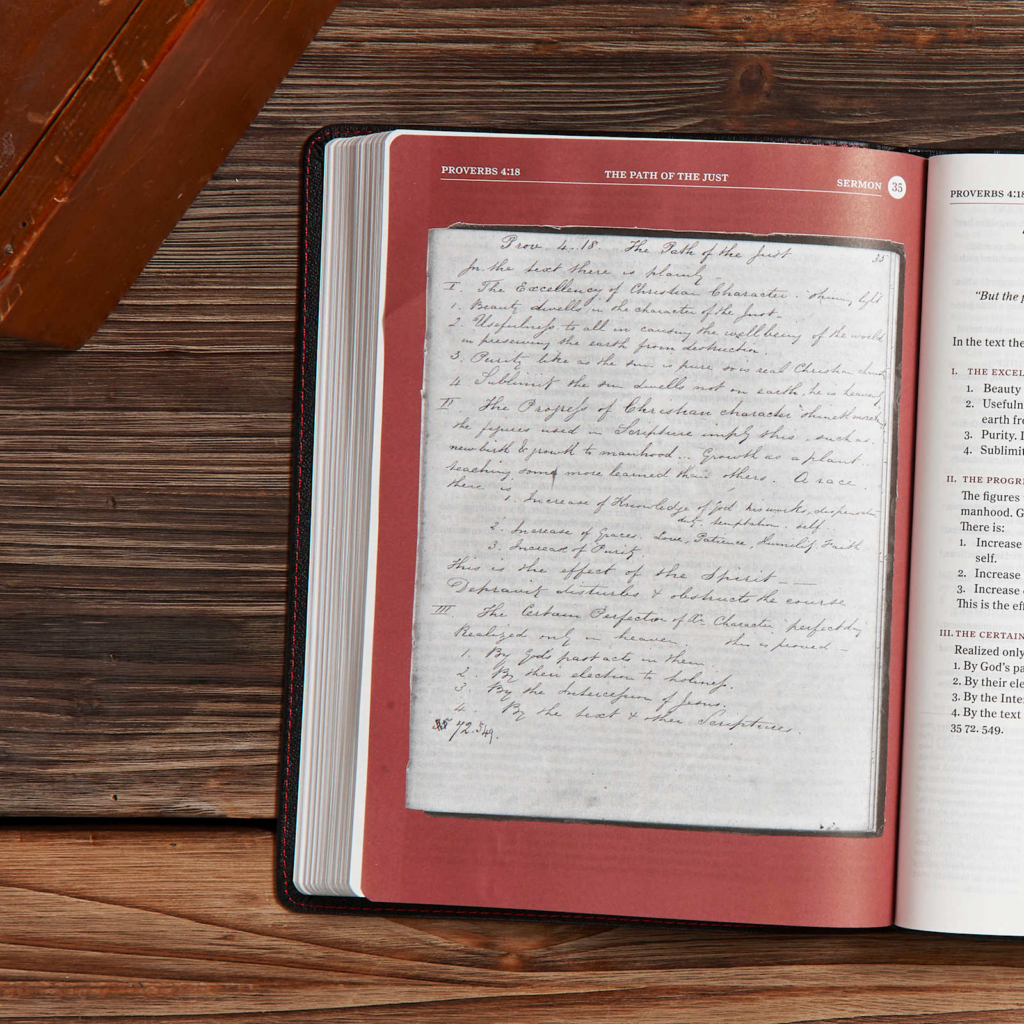 PROVERBS 4:18 THE PATH OF THE JUST SERMON 35
Prov 4..18. The Path of the Just 35
In the text there is plainly
I. The Excellency of Christian Character. shining light
1. Beauty dwells in the character of the Just.
2. Usefulness to all in causing the well being of the world
in preserving the earth from destruction.
3. Purity like as the sun is pure so is real Christian
4. Sublimity the sun dwells not on earth, he is heavenly
II. The Progress of Christian character "shineth more
the figures used in Scripture imply this, such as.
new birth & growth to manhood... Growth as a plant...
teaching some more learned than others. A race.
there is
1. Increase of Knowledge of God his works,
duty, temptation, self.
2. Increase of Graces. Love, Patience, Humility, Faith
3. Increase of Purity
This is the effect of the Spirit — —
Depravity disturbs & obstructs the course
III. The Certain Perfection of Xn Character "perfect day
Realized only in heaven. this is proved —
1. By Gods past acts in them.
2. By their election to holiness.
3. By the Intercession of Jesus.
4. By the text & other Scriptures.
35 72. 549.
PROVERBS 4:18
"But the
In the text the
I. THE EXCEL
1. Beauty
2. Usefuln
earth fro
3. Purity. I
4. Sublimit
II. THE PROGRE
The figures
manhood. G
There is:
1. Increase
self.
2. Increase
3. Increase
This is the eff
III. THE CERTAIN
Realized only
1. By God's pa
2. By their ele
3. By the Inte
4. By the text
35 72. 549.